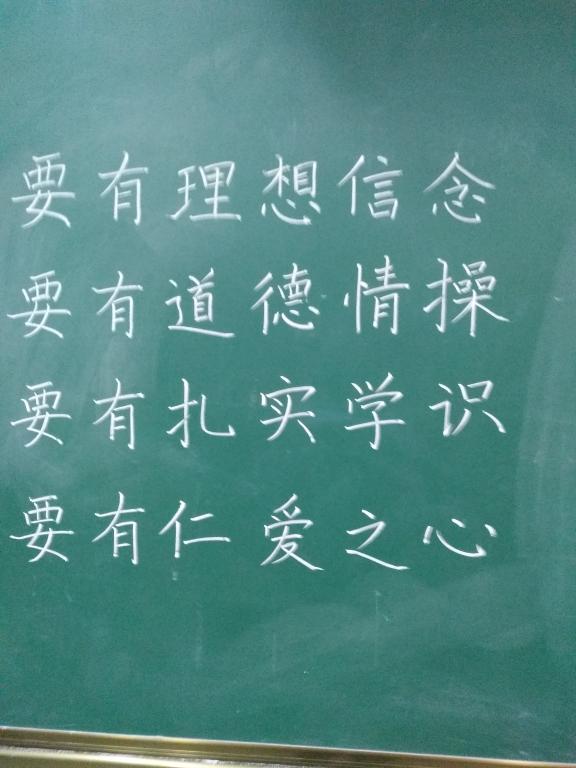 要有理想信念
要有道德情操
要有扎实学识
要有仁爱之心